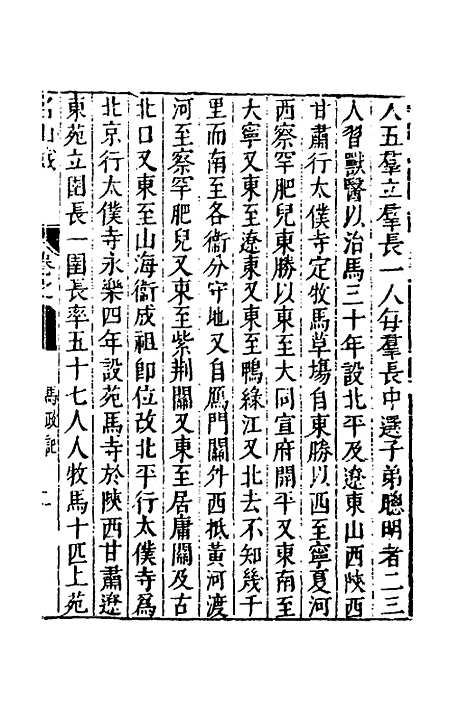 人五羣立羣長一人每羣長中選子弟聰明者二三
人習獸醫以治馬三十年設北平及遼東山西陜西
甘肅行太僕寺定牧馬草塲自東勝以西至寧夏河
西察罕肥兒東勝以東至大同宣府開平又東南至
大寧又東至遼東又東至鴨綠江又北去不知幾千
里而南至各衞分守地又自鴈門關外西抵黃河渡
河至察罕肥兒又東至紫荆關又東至居庸關及古
北口又東至山海衞成祖卽位改北平行太僕寺爲
北京行太僕寺永樂四年設苑馬寺於陜西甘肅遼
東苑立圉長一圉長率五十七人人牧馬十匹上苑
名山藏
卷之
馬政記
二